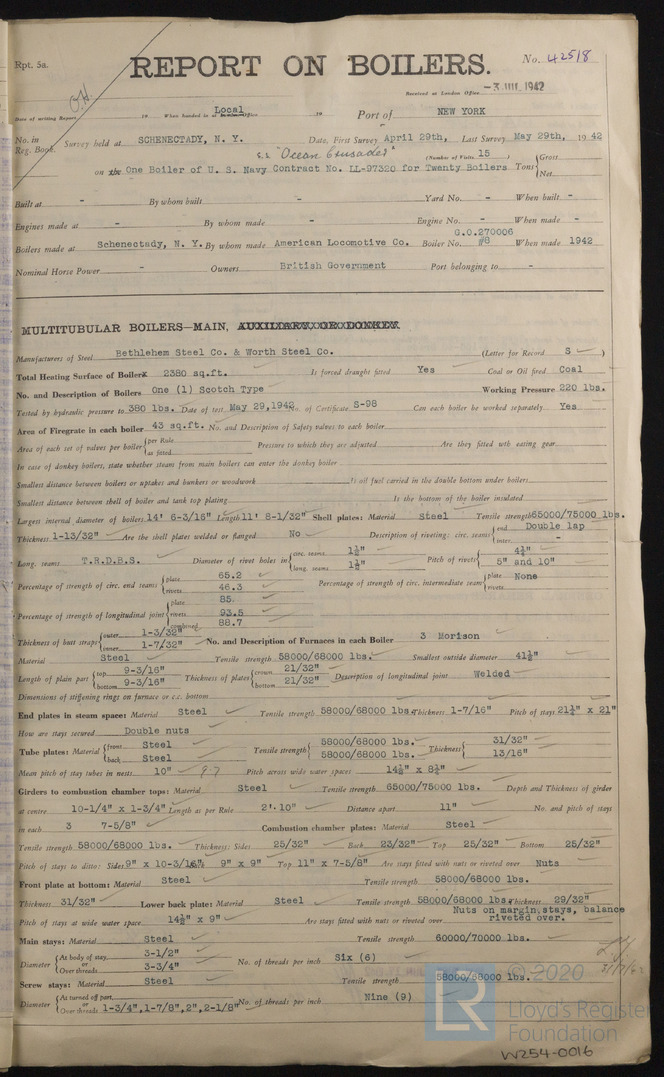 Rpt. 5a.
REPORT ON BOILERS.
No. 42518
Received at London Office -3 JUL 1942
Date of writing Report 19 When handed in at Local Office 19 Port of NEW YORK
No. in Reg. Book. Survey held at SCHENECTADY, N. Y. Date, First Survey April 29th, Last Survey May 29th, 19 42
s.s. "Ocean Crusader" (Number of Visits 15 )
on the One Boiler of U. S. Navy Contract No. LL-97320 for Twenty Boilers Tons {Gross Net
Built at - By whom built - Yard No. - When built -
Engines made at - By whom made - Engine No. - When made -
Boilers made at Schenectady, N. Y. By whom made American Locomotive Co. Boiler No. G.O.270006 #8 When made 1942
Nominal Horse Power - Owners British Government Port belonging to -
MULTITUBULAR BOILERS—MAIN, AUXILIARY OR DONKEY.
Manufacturers of Steel Bethlehem Steel Co. & Worth Steel Co. (Letter for Record S )
Total Heating Surface of Boiler 2380 sq.ft. Is forced draught fitted Yes Coal or Oil fired Coal
No. and Description of Boilers One (1) Scotch Type Working Pressure 220 lbs.
Tested by hydraulic pressure to 380 lbs. Date of test May 29,1942 No. of Certificate S-98 Can each boiler be worked separately Yes
Area of Firegrate in each boiler 43 sq.ft. No. and Description of Safety valves to each boiler
Area of each set of valves per boiler {per Rule as fitted Pressure to which they are adjusted Are they fitted with easing gear
In case of donkey boilers, state whether steam from main boilers can enter the donkey boiler
Smallest distance between boilers or uptakes and bunkers or woodwork Is oil fuel carried in the double bottom under boilers
Smallest distance between shell of boiler and tank top plating Is the bottom of the boiler insulated
Largest internal diameter of boilers 14' 6-3/16" Length 11' 8-1/32" Shell plates: Material Steel Tensile strength 65000/75000 lbs.
Thickness 1-13/32" Are the shell plates welded or flanged No Description of riveting: circ. seams {end Double lap inter. -
Long. seams T.R.D.B.S. Diameter of rivet holes in {circ. seams 1½" long. seams 1½" Pitch of rivets { 4¾" 5" and 10"
Percentage of strength of circ. end seams {plate 65.2 rivets 46.3 Percentage of strength of circ. intermediate seam {plate None rivets
Percentage of strength of longitudinal joint {plate 85. rivets 93.5 combined 88.7
Thickness of butt straps {outer 1-3/32" inner 1-7/32" No. and Description of Furnaces in each Boiler 3 Morison
Material Steel Tensile strength 58000/68000 lbs. Smallest outside diameter 41½"
Length of plain part {top 9-3/16" bottom 9-3/16" Thickness of plates {crown 21/32" bottom 21/32" Description of longitudinal joint Welded
Dimensions of stiffening rings on furnace or c.c. bottom
End plates in steam space: Material Steel Tensile strength 58000/68000 lbs. Thickness 1-7/16" Pitch of stays 21¼" x 21"
How are stays secured Double nuts
Tube plates: Material {front Steel back Steel Tensile strength { 58000/68000 lbs. 58000/68000 lbs. Thickness { 31/32" 13/16"
Mean pitch of stay tubes in nests 10" 9.7 Pitch across wide water spaces 14½" x 8¾"
Girders to combustion chamber tops: Material Steel Tensile strength 65000/75000 lbs. Depth and Thickness of girder
at centre 10-1/4" x 1-3/4" Length as per Rule 2'.10" Distance apart 11" No. and pitch of stays
in each 3 7-5/8" Combustion chamber plates: Material Steel
Tensile strength 58000/68000 lbs. Thickness: Sides 25/32" Back 23/32" Top 25/32" Bottom 25/32"
Pitch of stays to ditto: Sides 9" x 10-3/16" 9" x 9" Top 11" x 7-5/8" Are stays fitted with nuts or riveted over Nuts
Front plate at bottom: Material Steel Tensile strength 58000/68000 lbs.
Thickness 31/32" Lower back plate: Material Steel Tensile strength 58000/68000 lbs. Thickness 29/32"
Pitch of stays at wide water space 14½" x 9" Are stays fitted with nuts or riveted over Nuts on margin stays, balance riveted over.
Main stays: Material Steel Tensile strength 60000/70000 lbs.
Diameter {At body of stay 3-1/2" or Over threads 3-3/4" No. of threads per inch Six (6)
Screw stays: Material Steel Tensile strength 58000/68000 lbs.
Diameter {At turned off part or Over threads 1-3/4",1-7/8",2",2-1/8" No. of threads per inch Nine (9)
© 2020
LR
Lloyd's Register
Foundation
W254-0016